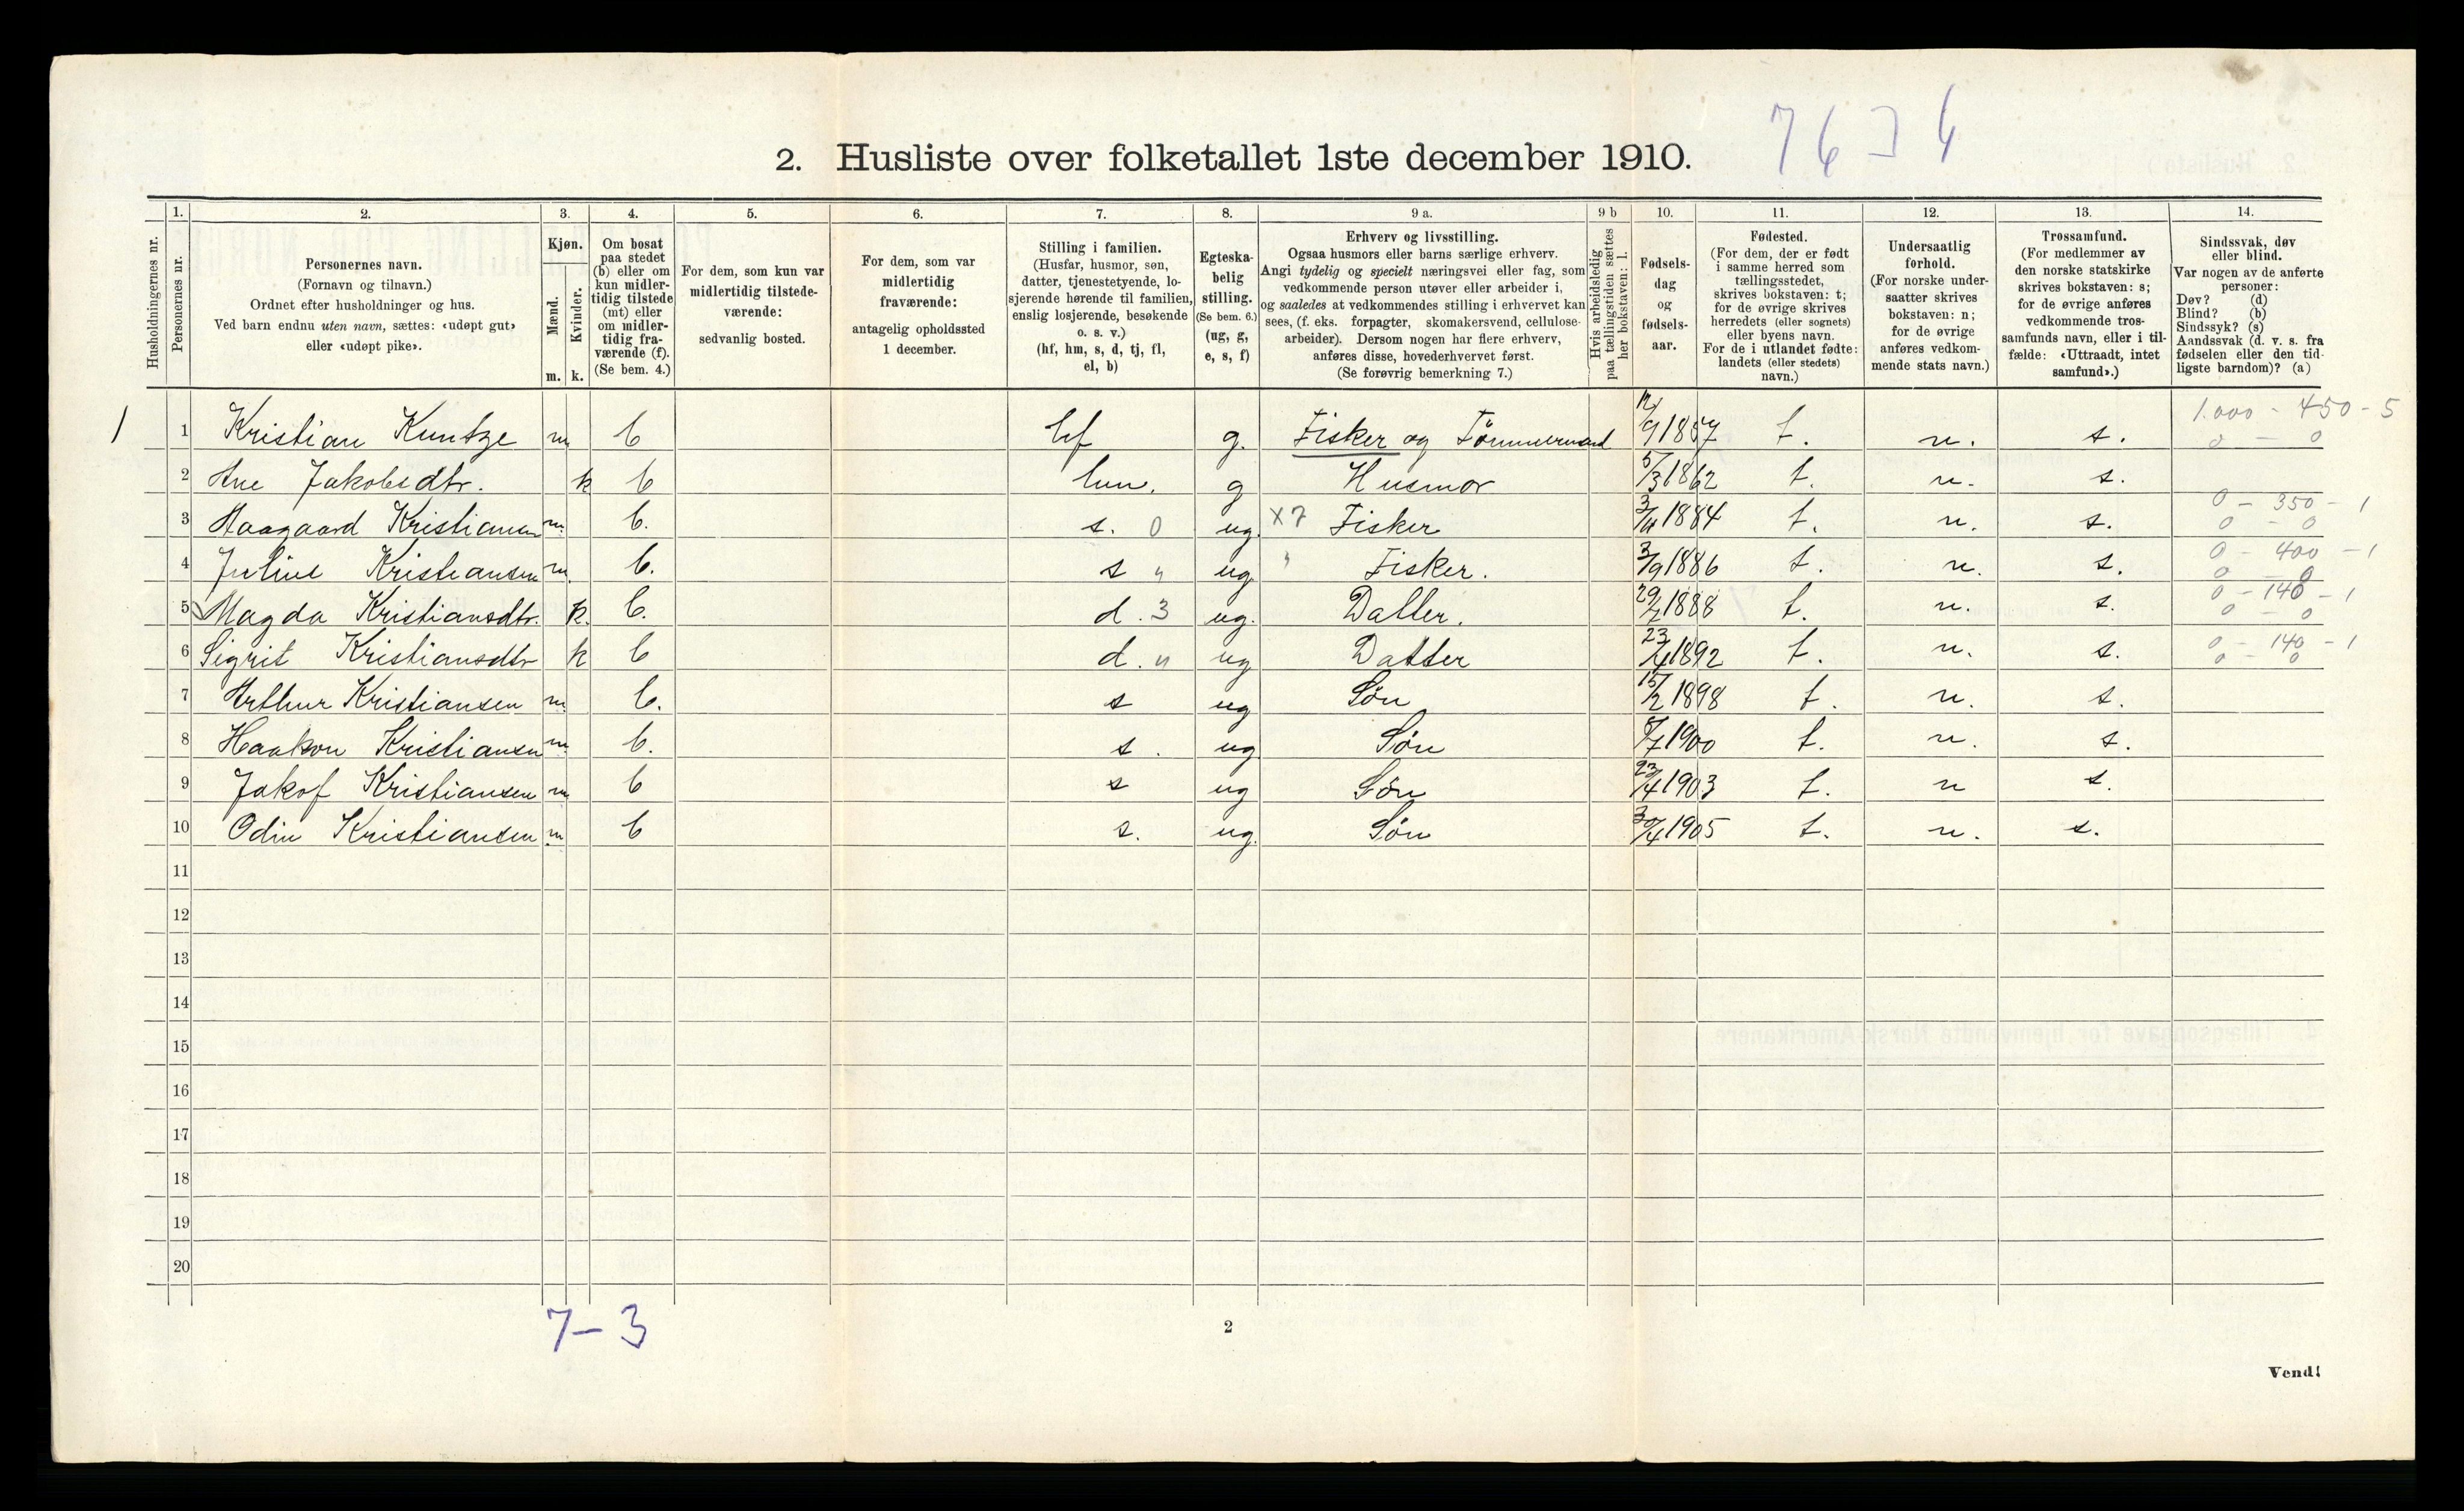 7634
2. Husliste over folketallet 1ste december 1910.
Husholdningernes nr.
1.
Personernes nr.
2.
Personernes navn.
(Fornavn og tilnavn.)
Ordnet efter husholdninger og hus.
Ved barn endnu uten navn, sættes: «udøpt gut»
eller «udøpt pike».
3.
Kjøn.
Mænd.
Kvinder.
m. k.
4.
Om bosat
paa stedet
(b) eller om
kun midler-
tidig tilstede
(mt) eller
om midler-
tidig fra-
værende (f).
(Se bem. 4.)
5.
For dem, som kun var
midlertidig tilstede-
værende:
sedvanlig bosted.
6.
For dem, som var
midlertidig
fraværende:
antagelig opholdssted
1 december.
7.
Stilling i familien.
(Husfar, husmor, søn,
datter, tjenestetyende, lo-
sjerende hørende til familien,
enslig losjerende, besøkende
o. s. v.)
(hf, hm, s, d, tj, fl,
el, b)
8.
Egteska-
belig
stilling.
(Se bem. 6.)
(ug, g,
e, s, f)
9 a.
Erhverv og livsstilling.
Ogsaa husmors eller barns særlige erhverv.
Angi tydelig og specielt næringsvei eller fag, som
vedkommende person utøver eller arbeider i,
og saaledes at vedkommendes stilling i erhvervet kan
sees, (f. eks. forpagter, skomakersvend, cellulose-
arbeider). Dersom nogen har flere erhverv,
anføres disse, hovederhvervet først.
(Se forøvrig bemerkning 7.)
9 b
Hvis arbeidsledig
paa tællingstiden sættes
her bokstaven: l.
10.
Fødsels-
dag
og
fødsels-
aar.
11.
Fødested.
(For dem, der er født
i samme herred som
tællingsstedet,
skrives bokstaven: t;
for de øvrige skrives
herredets (eller sognets)
eller byens navn.
For de i utlandet fødte:
landets (eller stedets)
navn.)
12.
Undersaatlig
forhold.
(For norske under-
saatter skrives
bokstaven: n;
for de øvrige
anføres vedkom-
mende stats navn.)
13.
Trossamfund.
(For medlemmer av
den norske statskirke
skrives bokstaven: s;
for de øvrige anføres
vedkommende tros-
samfunds navn, eller i til-
fælde: «Uttraadt, intet
samfund».)
14.
Sindssvak, døv
eller blind.
Var nogen av de anførte
personer:
Døv? (d)
Blind? (b)
Sindssyk? (s)
Aandssvak (d. v. s. fra
fødselen eller den tid-
ligste barndom)? (a)
1 1 Kristian Kuntze m b hf g. Fisker og Tømmermand 12/9 1857 t. n. s. 1.000 - 450 - 5 0 - 0
2 Ane Jakobsdtr. k b hm. g Husmor 5/3 1862 t. n. s.
3 Aaagaard Kristiansen m. b. s. 0 ug. x7 Fisker 3/11 1884 t. n. s. 0 - 350 - 1 0 - 0
4 Julius Kristiansen m. b. s " ug " Fisker. 3/9 1886 t. n. s. 0 - 400 - 1 0 - 0
5 Magda Kristiansdtr. k. b. d. 3 ug. Datter. 29/7 1888 t. n. s. 0 - 140 - 1 0 - 0
6 Sigrit Kristiansdtr k b d. " ug Datter 23/4 1892 t. n. s. 0 - 140 - 1 0 - 0
7 Arthur Kristiansen m. b. s ug Søn 15/2 1898 t. n. s.
8 Haakon Kristiansen m b. s. ug Søn 8/7 1900 t. n. s.
9 Jakof Kristiansen m b s ug Søn 23/4 1903 t. n s.
10 Odin Kristiansen m b s. ug. Søn 30/4 1905 t. n. s.
11
12
13
14
15
16
17
18
19
20
7-3
2
Vend!